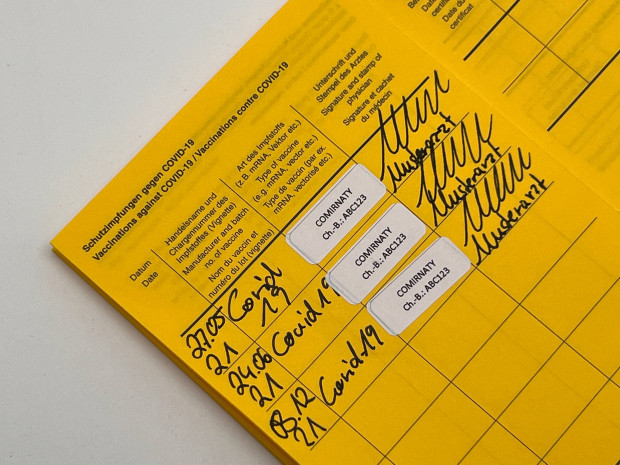 Schutzimpfungen gegen COVID-19
Vaccinations against COVID-19 / Vaccinations contre COVID-19
Datum
Date
Handelsname und
Chargennummer des
Impfstoffes (Vignette)
Manufacturer and batch
no. of vaccine
Nom du vaccin et
numéro du lot (vignette)
Art des Impfstoffs
(z.B. mRNA, Vektor etc.)
Type of vaccine
(e.g. mRNA, vector etc.)
Type de vaccin (par ex.
mRNA, vectorisé etc.)
Unterschrift und
Stempel des Arztes
Signature and stamp of
physician
Signature et cachet
du médecin
27.05
21
Covid
19
COMIRNATY
Ch.-B.: ABC123
Musterarzt
24.06
21
Covid 19
COMIRNATY
Ch.-B.: ABC123
Musterarzt
08.12
21
Covid 19
COMIRNATY
Ch.-B.: ABC123
Musterarzt
Date du
certificat